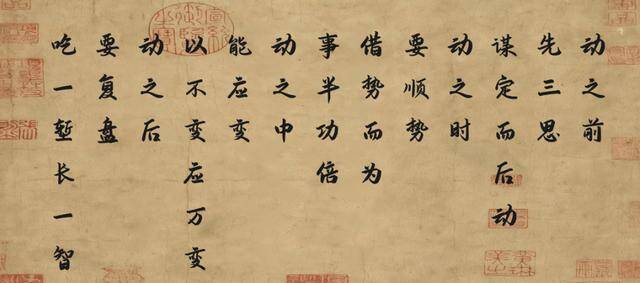 动之前
先三思
谋定而后动
动之时
要顺势
借势而为
事半功倍
动之中
能应变
以不变应万变
动之后
要复盘
吃一堑长一智